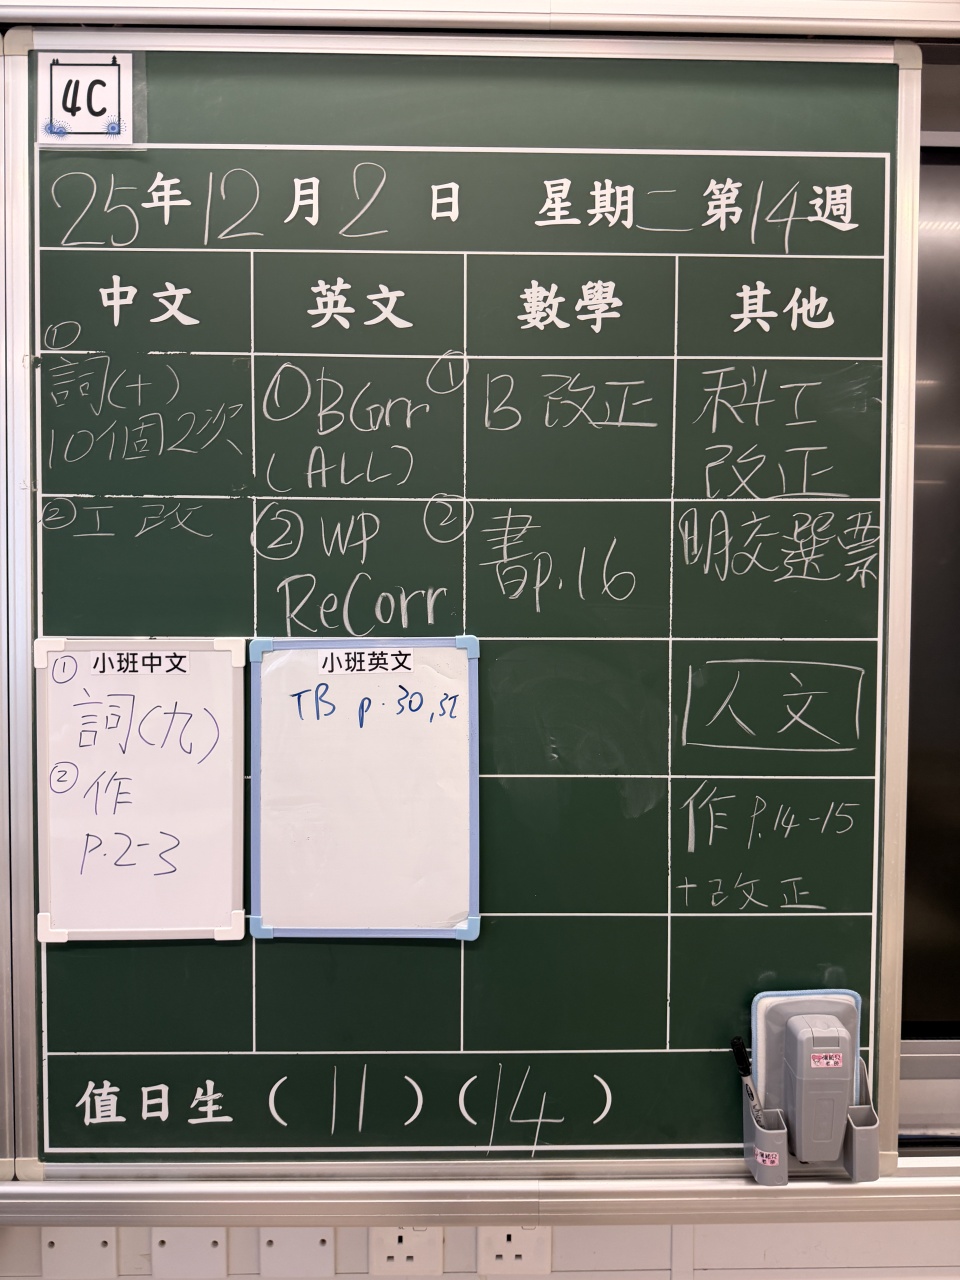 4C
25年12月2日 星期二 第14週
中文
英文
數學
其他
①
詞(十)
10個2次
② 工改
① BGrr
(ALL)
② WP
ReCorr
① B 改正
② 書p.16
科工
改正
明交選票
人文
作 P.14-15
+改正
小班中文
①
詞(九)
②
作
P.2-3
小班英文
TB p.30,31
值日生 ( 11 ) ( 14 )